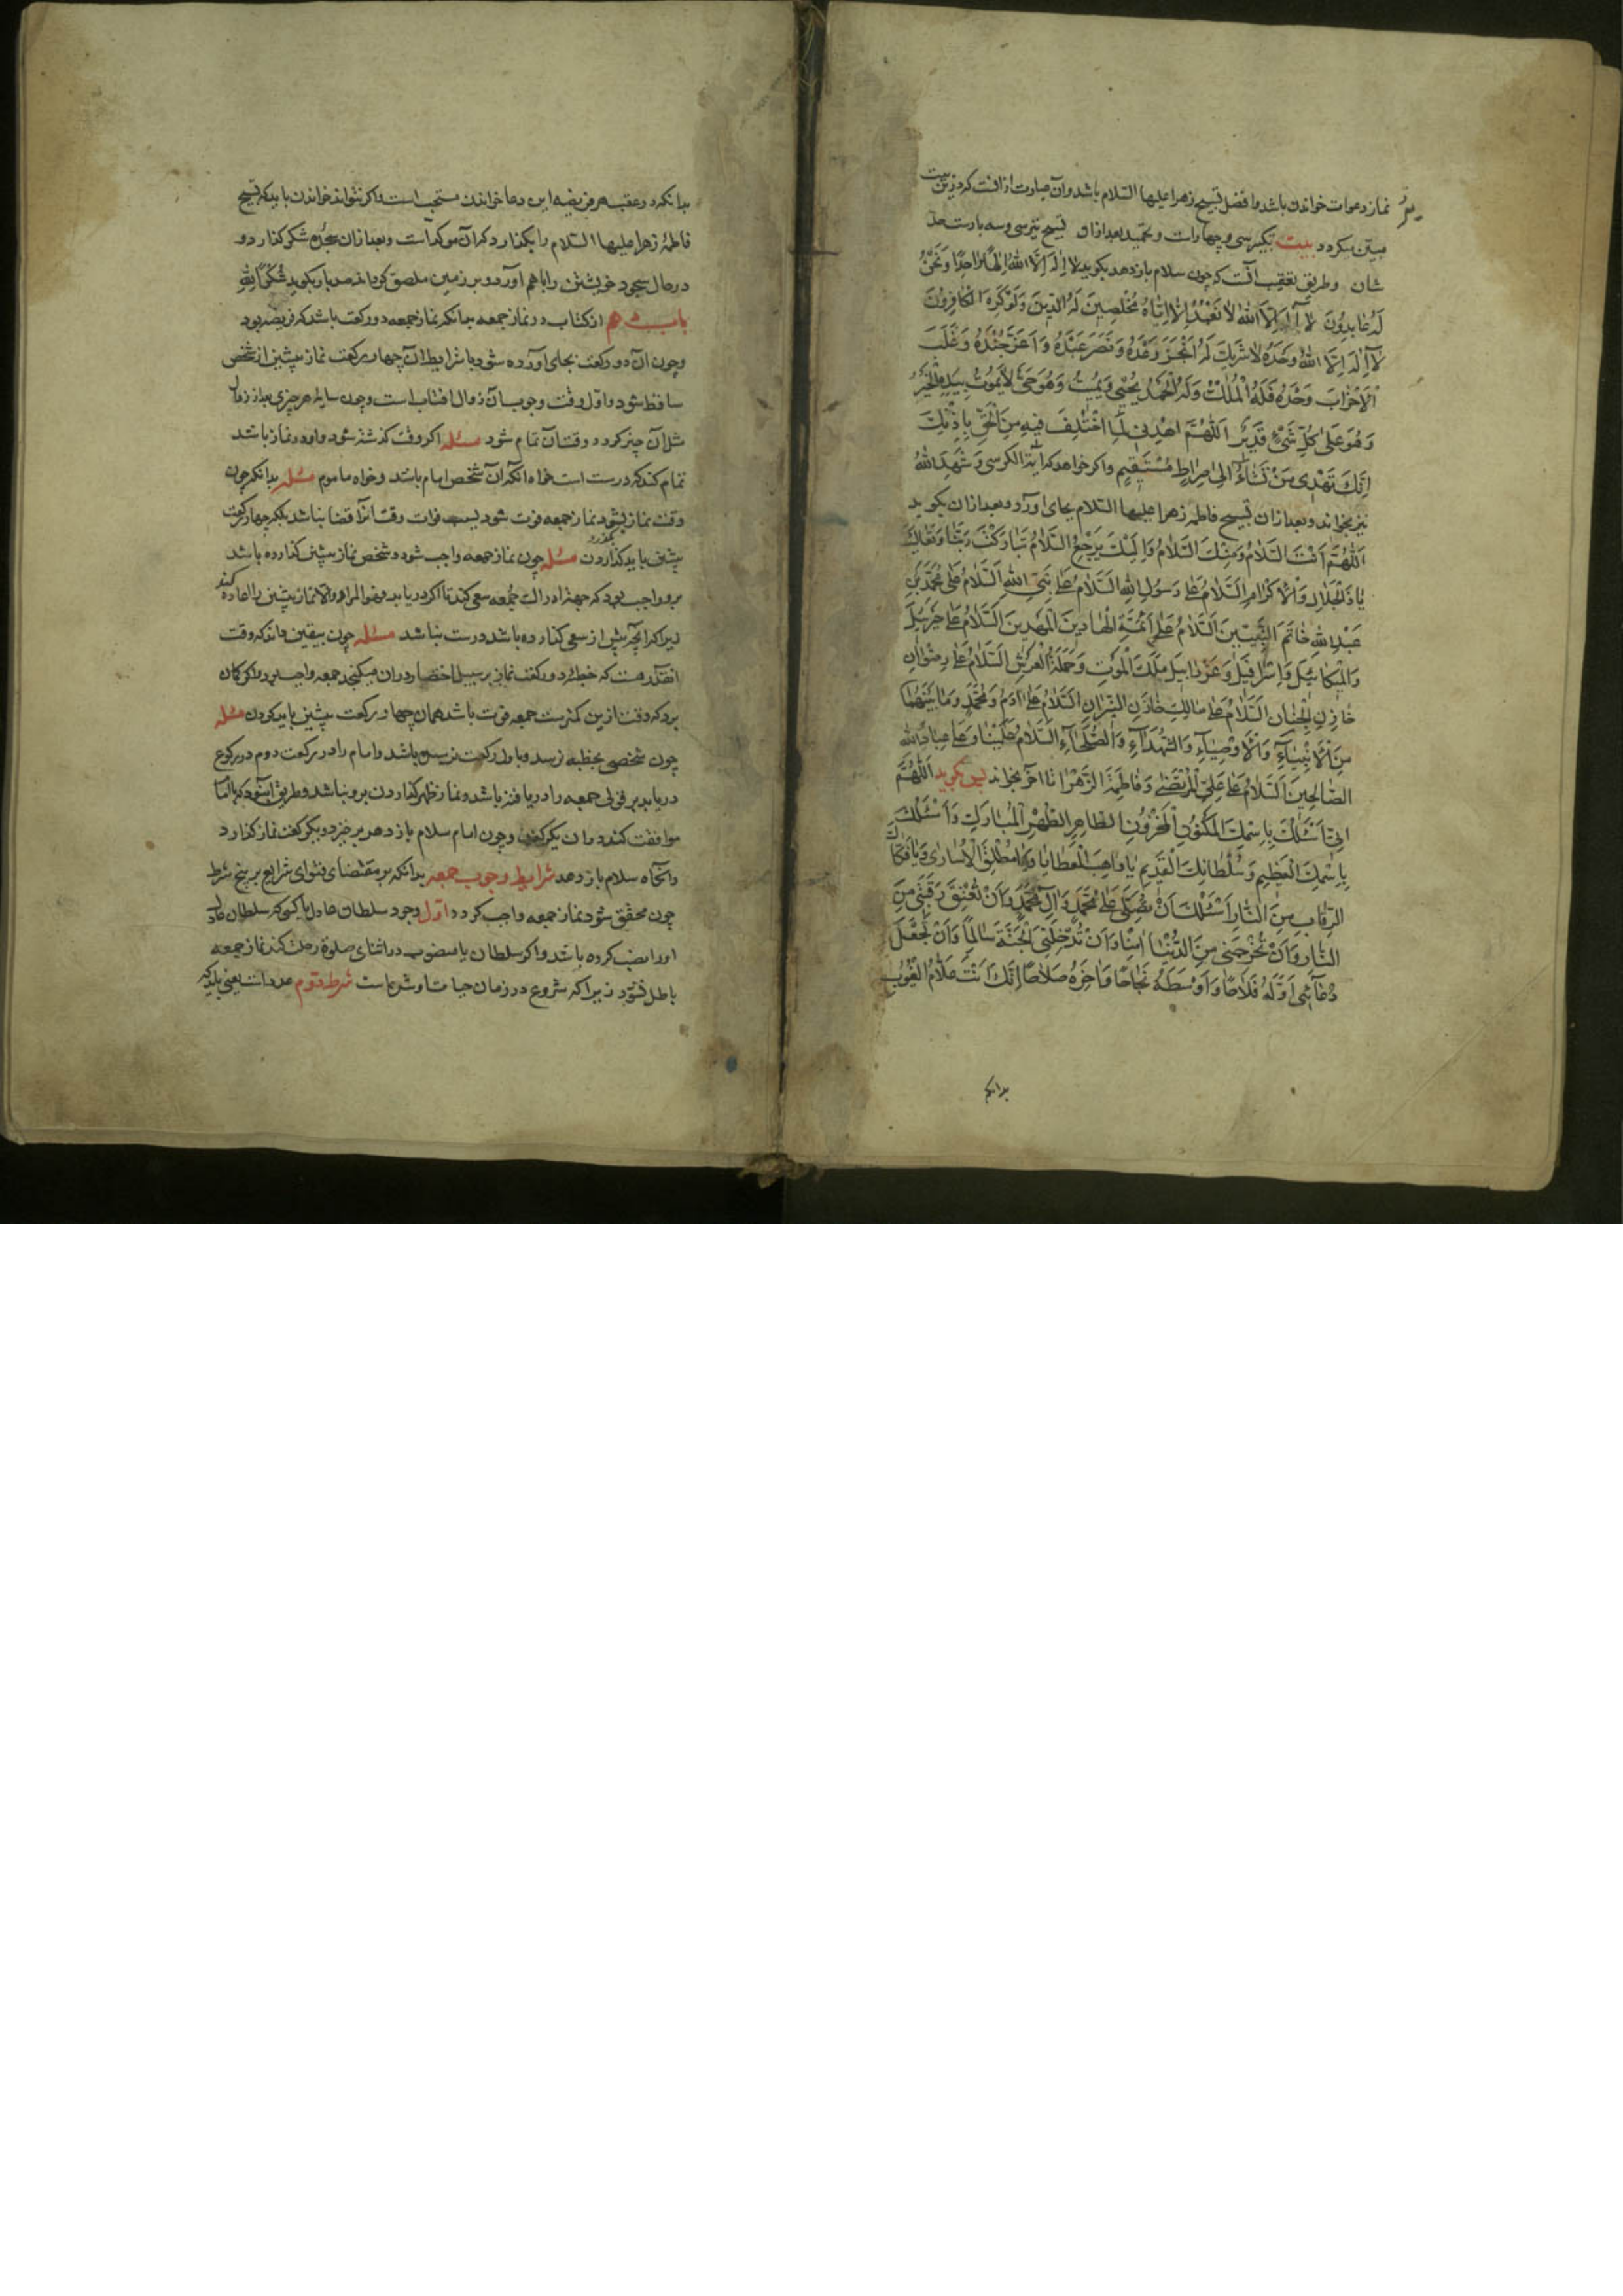 نماز دعوات خواندن باشد و افضل تسبیح زهرا علیها السّلام باشد و آن عبارت از آنست که درین بیت
مبیّن میکردد بیت تکبیر سی و چهارات و تحمید بعد ازان تسبیح نیز سی و سه بارست حد
شان و طریق تعقیب آنست که چون سلام باز دهد بکوید لا اِلٰهَ اِلَّا اللهُ اِلٰهًا وٰاحِدًا وَنَحْنُ
لَهُ عٰابِدُونَ لٰا اِلٰهَ اِلَّا اللهُ لٰا نَعْبُدُ اِلَّا اِیّٰاهُ مُخْلِصِینَ لَهُ الدّینَ وَلَوْ کَرِهَ الْکٰافِرُونَ
لٰا اِلٰهَ اِلَّا اللهُ وَحْدَهُ لٰا شَرِیکَ لَهُ اَنْجَزَ وَعْدَهُ وَنَصَرَ عَبْدَهُ وَاَعَزَّ جُنْدَهُ وَغَلَبَ
الْاَحْزٰابَ وَحْدَهُ فَلَهُ الْمُلْکُ وَلَهُ الْحَمْدُ یُحْیِی وَیُمِیتُ وَهُوَ حَیٌّ لٰا یَمُوتُ بِیَدِهِ الْخَیْرُ
وَهُوَ عَلیٰ کُلِّ شَیْءٍ قَدِیرٌ اَللّٰهُمَّ اهْدِنِی لِمَا اخْتُلِفَ فِیهِ مِنَ الْحَقِّ بِاِذْنِکَ
اِنَّکَ تَهْدِی مَنْ تَشٰاءُ اِلیٰ صِرٰاطٍ مُسْتَقِیمٍ و اکر خواهد که ایة الکرسی و شَهِدَ اللهُ
نیز بخواند و بعد ازان تسبیح فاطمه زهرا علیها السّلام بجای اورد و بعد ازان بکوید
اَللّٰهُمَّ اَنْتَ السَّلٰامُ وَمِنْکَ السَّلٰامُ وَاِلَیْکَ یَرْجِعُ السَّلٰامُ تَبٰارَکْتَ رَبَّنٰا وَتَعٰالَیْتَ
یٰا ذَا الْجَلٰالِ وَالْاِکْرٰامِ اَلسَّلٰامُ عَلیٰ رَسُولِ اللهِ اَلسَّلٰامُ عَلیٰ نَبِیِّ اللهِ اَلسَّلٰامُ عَلیٰ مُحَمَّدِ بْنِ
عَبْدِ اللهِ خٰاتَمِ النَّبِیّینَ اَلسَّلٰامُ عَلیٰ اَئِمَّةِ الْهٰادِینَ الْمَهْدِیّینَ اَلسَّلٰامُ عَلیٰ جَبْرَئِیلَ
وَالْمِیکٰائِیلَ وَاِسْرٰافِیلَ وَعِزْرٰایِیلَ مَلَکِ الْمَوْتِ وَحَمَلَةِ الْعَرْشِ اَلسَّلٰامُ عَلیٰ رِضْوٰانِ
خٰازِنِ الْجِنٰانِ اَلسَّلٰامُ عَلیٰ مٰالِکٍ خٰازِنِ النِّیرٰانِ اَلسَّلٰامُ عَلیٰ اٰدَمَ وَمُحَمَّدٍ وَمٰا بَیْنَهُمٰا
مِنَ الْاَنْبِیٰاءِ وَالْاَوْصِیٰاءِ وَالشُّهَدٰاءِ وَالصُّلَحٰاءِ اَلسَّلٰامُ عَلَیْنٰا وَعَلیٰ عِبٰادِ اللهِ
الصّٰالِحِینَ اَلسَّلٰامُ عَلیٰ عَلِیِّ الْمُرْتَضیٰ وَفٰاطِمَةَ الزَّهْرٰا تا اخر بخواند پس بکوید اَللّٰهُمَّ
اِنّی اَسْئَلُکَ بِاسْمِکَ الْمَکْنُونِ الْمَخْزُونِ الطّٰاهِرِ الطُّهْرِ الْمُبٰارَکِ وَاَسْئَلُکَ
بِاسْمِکَ الْعَظِیمِ وَسُلْطٰانِکَ الْقَدِیمِ یٰا وٰاهِبَ الْعَطٰایٰا وَیٰا مُطْلِقَ الْاُسٰاریٰ وَیٰا فَکّٰاکَ
الرِّقٰابِ مِنَ النّٰارِ اَسْئَلُکَ اَنْ تُصَلِّیَ عَلیٰ مُحَمَّدٍ وَاٰلِ مُحَمَّدٍ وَاَنْ تُعْتِقَ رَقَبَتِی مِنَ
النّٰارِ وَاَنْ تُخْرِجَنِی مِنَ الدُّنْیٰا اٰمِنًا وَاَنْ تُدْخِلَنِی الْجَنَّةَ سٰالِمًا وَاَنْ تَجْعَلَ
دُعٰائِی اَوَّلَهُ فَلٰاحًا وَاَوْسَطَهُ نَجٰاحًا وَاٰخِرَهُ صَلٰاحًا اِنَّکَ اَنْتَ عَلّٰامُ الْغُیُوبِ
بدانکه
بدانکه در عقب هر فریضه این دعا خواندن مستحب است و اکر نتواند خواندن باید که تسبیح
فاطمهٔ زهرا علیها السّلام را بکذارد که آن موکد است و بعد ازان سجدهٔ شکر کذارد و
در حال سجود خویشتن را با هم آورد و بر زمین ملصق کرداند صد بار بکوید شُکْرًا لِلّٰهِ
باب هم از کتاب در نماز جمعه بدانکه نماز جمعه دو رکعت باشد که فریضه بود
و چون ان دو رکعت بجای آورده شود با شرایط ان چهار رکعت نماز پیشین از شخص
ساقط شود و اول وقت وجوب آن زوال افتاب است و چون سایهٔ هر چیزی بعد از زوال
مثل آن چیز کردد وقت آن تمام شود مسئله اکر وقت کذشته شود و او در نماز باشد
تمام کند که درست است خواه انکه آن شخص امام باشد و خواه ماموم مسئله بدانکه چون
وقت نماز بشود نماز جمعه فوت شود بسبب فوات وقت انرا قضا نباشد بلکه چهار رکعت
پیشین باید کذاردن مسئله چون نماز جمعه واجب شود و شخص نماز پیشین کذارده باشد
برو واجب بود که جهة ادراک جُمعه سعی کند تا اکر دریابد فهو المراد والّا نماز پیشین را اعاده کند
زیرا که انچه پیش از سعی کذارده باشد درست نباشد مسئله چون بیقین داند که وقت
انقدر هست که خطبه و دو رکعت نماز بر سبیل اختصار در ان میکنجد جمعه واجب بود و اکر کمان
برد که وقت ازین کمترست جمعه فوت باشد همان چهار رکعت پیشین باید کردن مسئله
چون شخصی بخطبه نرسد و باول رکعت نرسیده باشد و امام را در رکعت دوم در رکوع
دریابد بر قولی جمعه را دریافته باشد و نماز ظهر کذاردن برو نباشد و طریق آنبود که با امام
موافقت کند در ان یک رکعت و چون امام سلام باز دهد برخیزد و یک رکعت نماز کذارد
و انکاه سلام باز دهد شرایط وجوب جمعه بدانکه بر مقتضای فتوای شرایع بر پنج شرط
چون محقق شود نماز جمعه واجب کردد اول وجود سلطان عادل یا کسی که سلطان عادل
او را نصب کرده باشد و اکر سلطان یا منصوب در اثنای صلوة رحلت کند نماز جمعه
باطل نشود زیرا که شروع در زمان حیات او شرعا است شرط دوم عدد است یعنی باید که